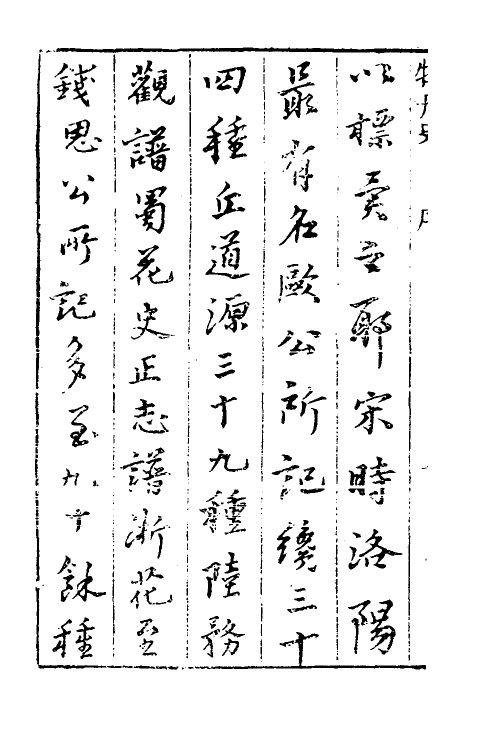 以標異之耶宋時洛陽
最有名歐公所記纔三十
四種丘道源三十九種陸務
觀譜蜀花史正志譜浙花至
錢思公所記多至九十餘種